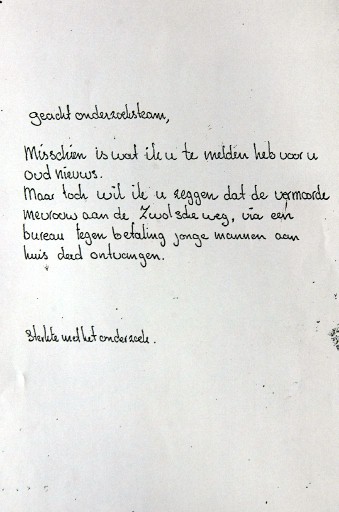 geacht onderzoeksteam,
Misschien is wat ik u te melden heb voor u
oud nieuws.
Maar toch wil ik u zeggen dat de vermoorde
mevrouw aan de Zwolsche weg, via een
bureau tegen betaling jonge mannen aan
huis deed ontvangen.
Sterkte met het onderzoek.